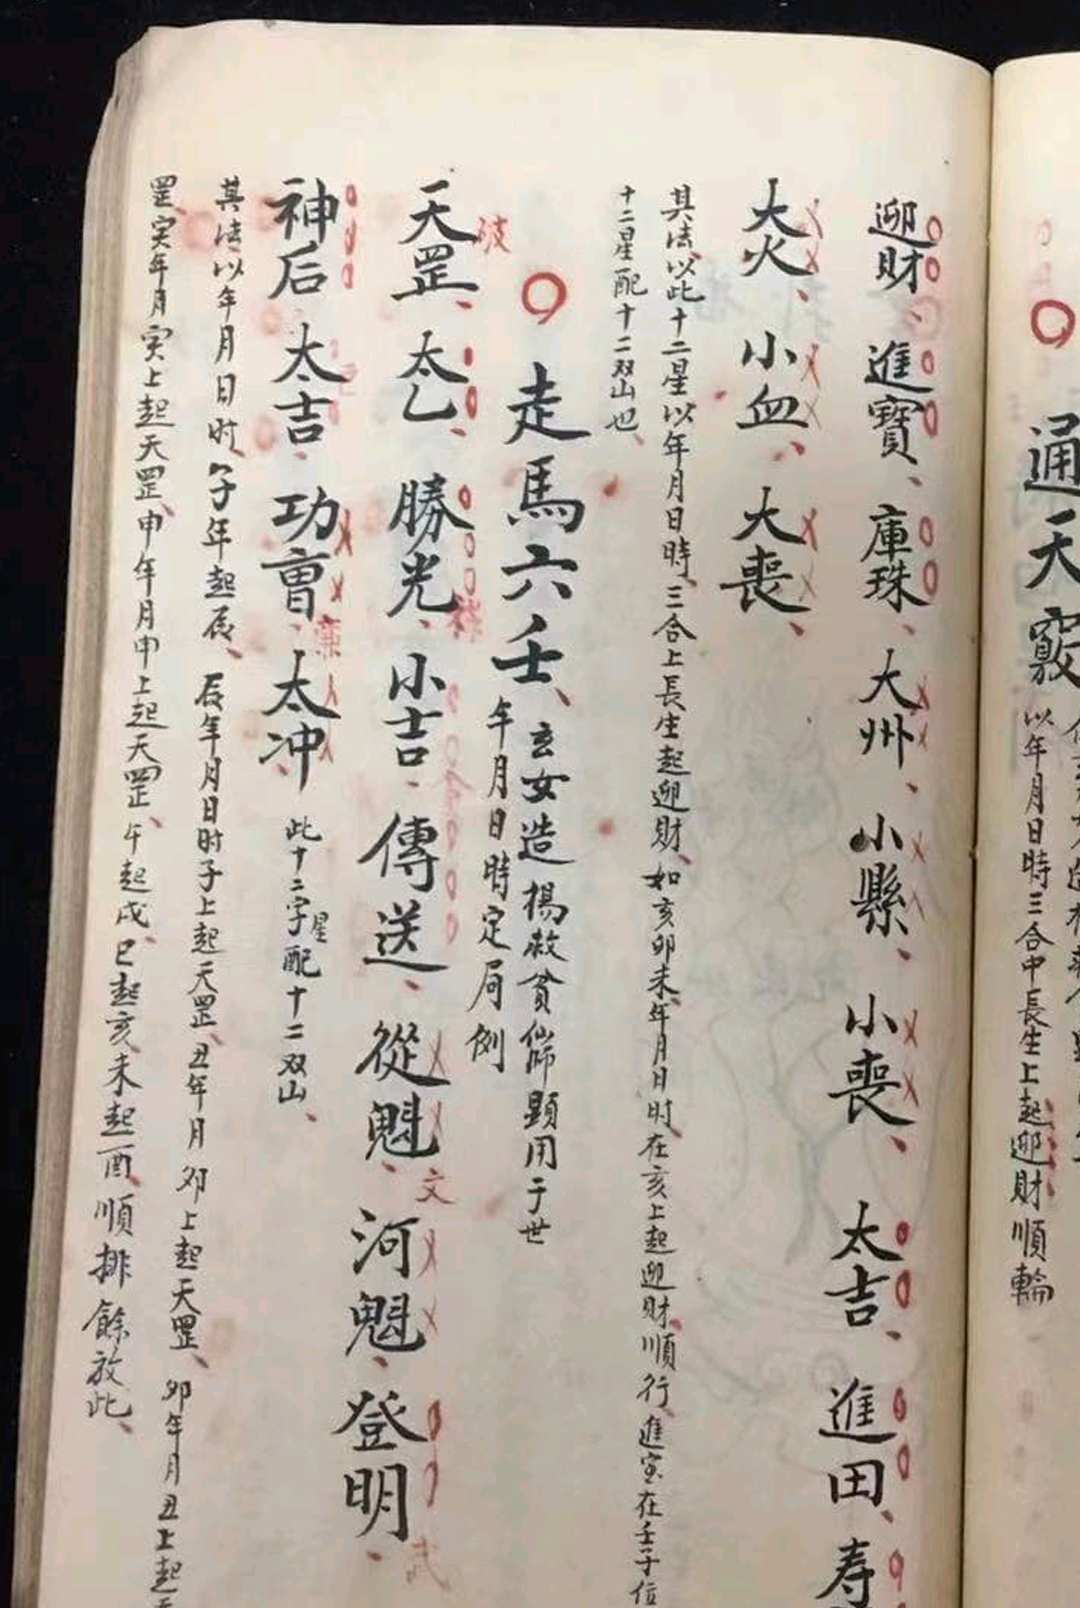 通天竅
以年月日時三合中長生上起迎財順輪
迎財、進寶、庫珠、大州、小縣、小喪、太吉、進田、寿
大火、小血、大喪、
其法以此十二星以年月日時三合上長生起迎財、如亥卯未年月日时、在亥上起迎財、順行、進宝在壬子位
十二星配十二双山也、
走馬六壬、玄女造楊救貧仙師顕用于世
年月日時定局例
破
天罡、太乙、勝光、小吉、傳送、從魁、河魁、登明、
禄
文
武
神后、太吉、功曹、太冲、此十二字星配十二双山、
廉
其法、以年月日时、子年起辰、辰年月日时子上起天罡、丑年月卯上起天罡、卯年月丑上起
罡、寅年月寅上起天罡、申年月申上起天罡、午起戌、巳起亥未起酉、順排餘放此、